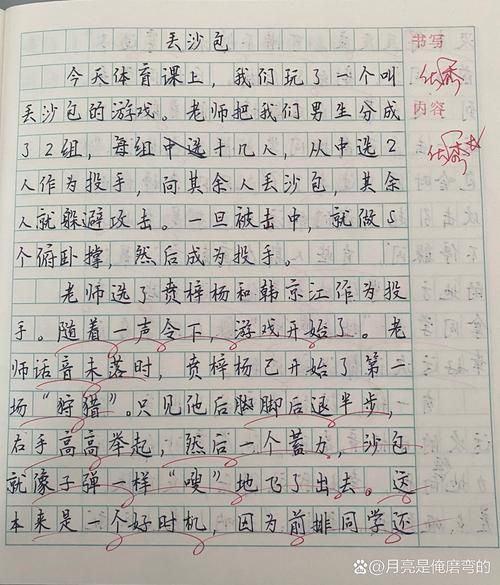 丢沙包
书写
优秀
今天体育课上，我们玩了一个叫
丢沙包的游戏。老师把我们男生分成
内容
优秀
了2组，每组中选十几人，从中选2
人作为投手，向其余人丢沙包，其余
人就躲避攻击。一旦被击中，就做5
个俯卧撑，然后成为投手。
老师选了贲梓杨和韩京江作为投
手。随着一声令下，游戏开始了。老
师话音未落时，贲梓杨已开始了第一
场“狩猎”。只见他后脚脚后退半步，
右手高高举起，然后一个蓄力，沙包
就像子弹一样“嗖”地飞了出去。这
本来是一个好时机，因为前排同学还
@月亮是俺磨弯的